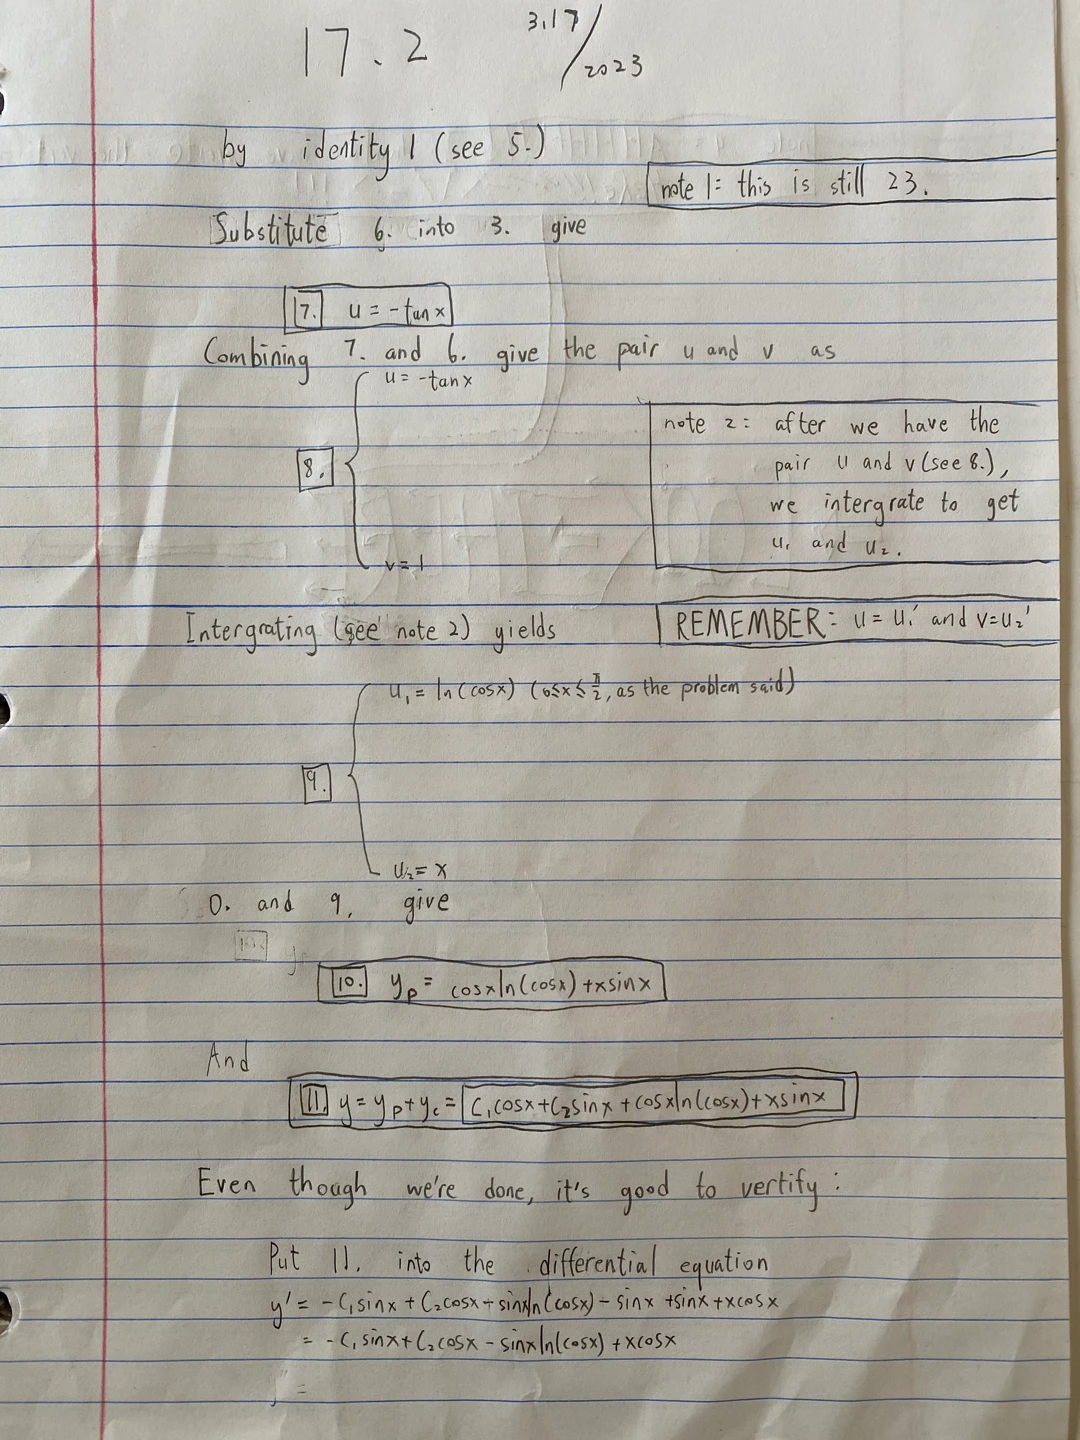 17.2 3.17/2023
by identity 1 (see 5.)
note 1: this is still 23.
Substitute 6. into 3. give
7. u = -tanx
Combining 7. and 6. give the pair u and v as
u = -tanx
8.
v = 1
note 2: after we have the
pair u and v (see 8.),
we intergrate to get
u₁ and u₂.
Intergrating (see note 2) yields
REMEMBER: u = u₁' and v = u₂'
u₁ = ln(cosx) (0≤x≤π/2, as the problem said)
9.
u₂ = x
0. and 9. give
10. yₚ = cosxln(cosx)+xsinx
And
11. y = yₚ+y꜀ = C₁cosx+C₂sinx+cosxln(cosx)+xsinx
Even though we're done, it's good to vertify:
Put 11. into the differential equation
y' = -C₁sinx + C₂cosx - sinxln(cosx) - sinx + sinx + xcosx
= -C₁sinx + C₂cosx - sinxln(cosx) + xcosx